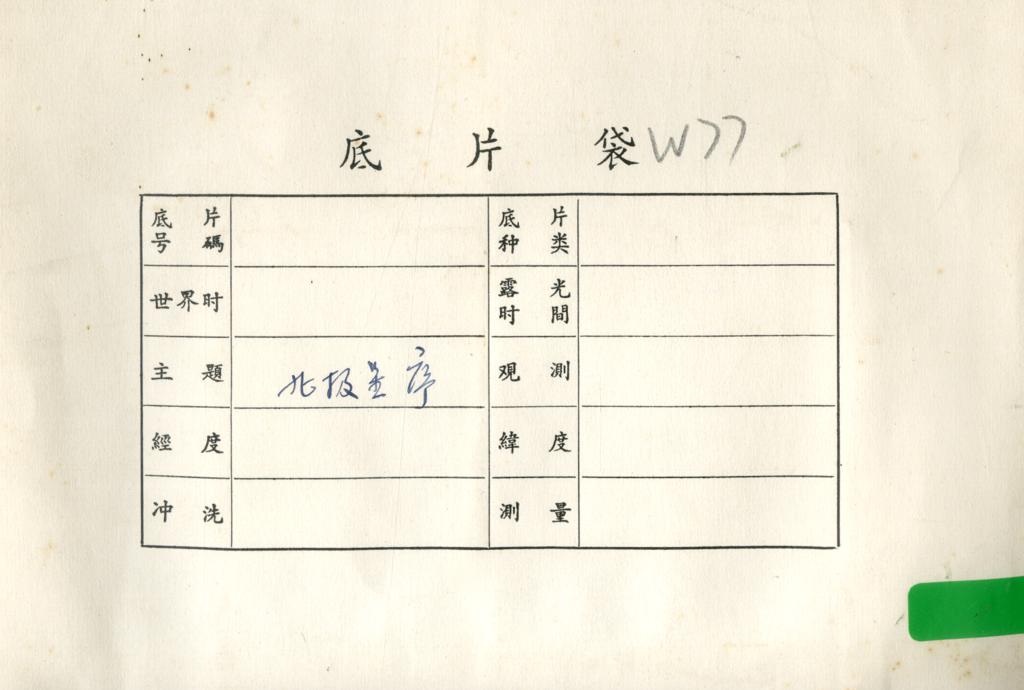 底片袋 W77
底片号碼 底片种类
世界时 露光时間
主題 北极星序 观測
經度 緯度
冲洗 測量